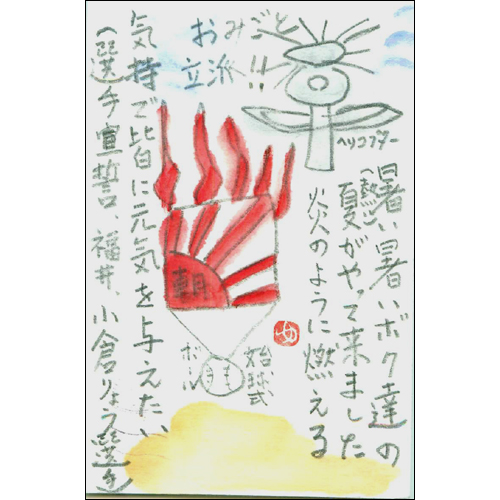 おみごと
立派!!
ヘリコプター
暑い暑いボク達の
(熱い)
夏がやって来ました
炎のように燃える
朝
始球式
ボール
気持で皆に元気を与えたい
(選手宣誓、福井、小倉りょう選手)